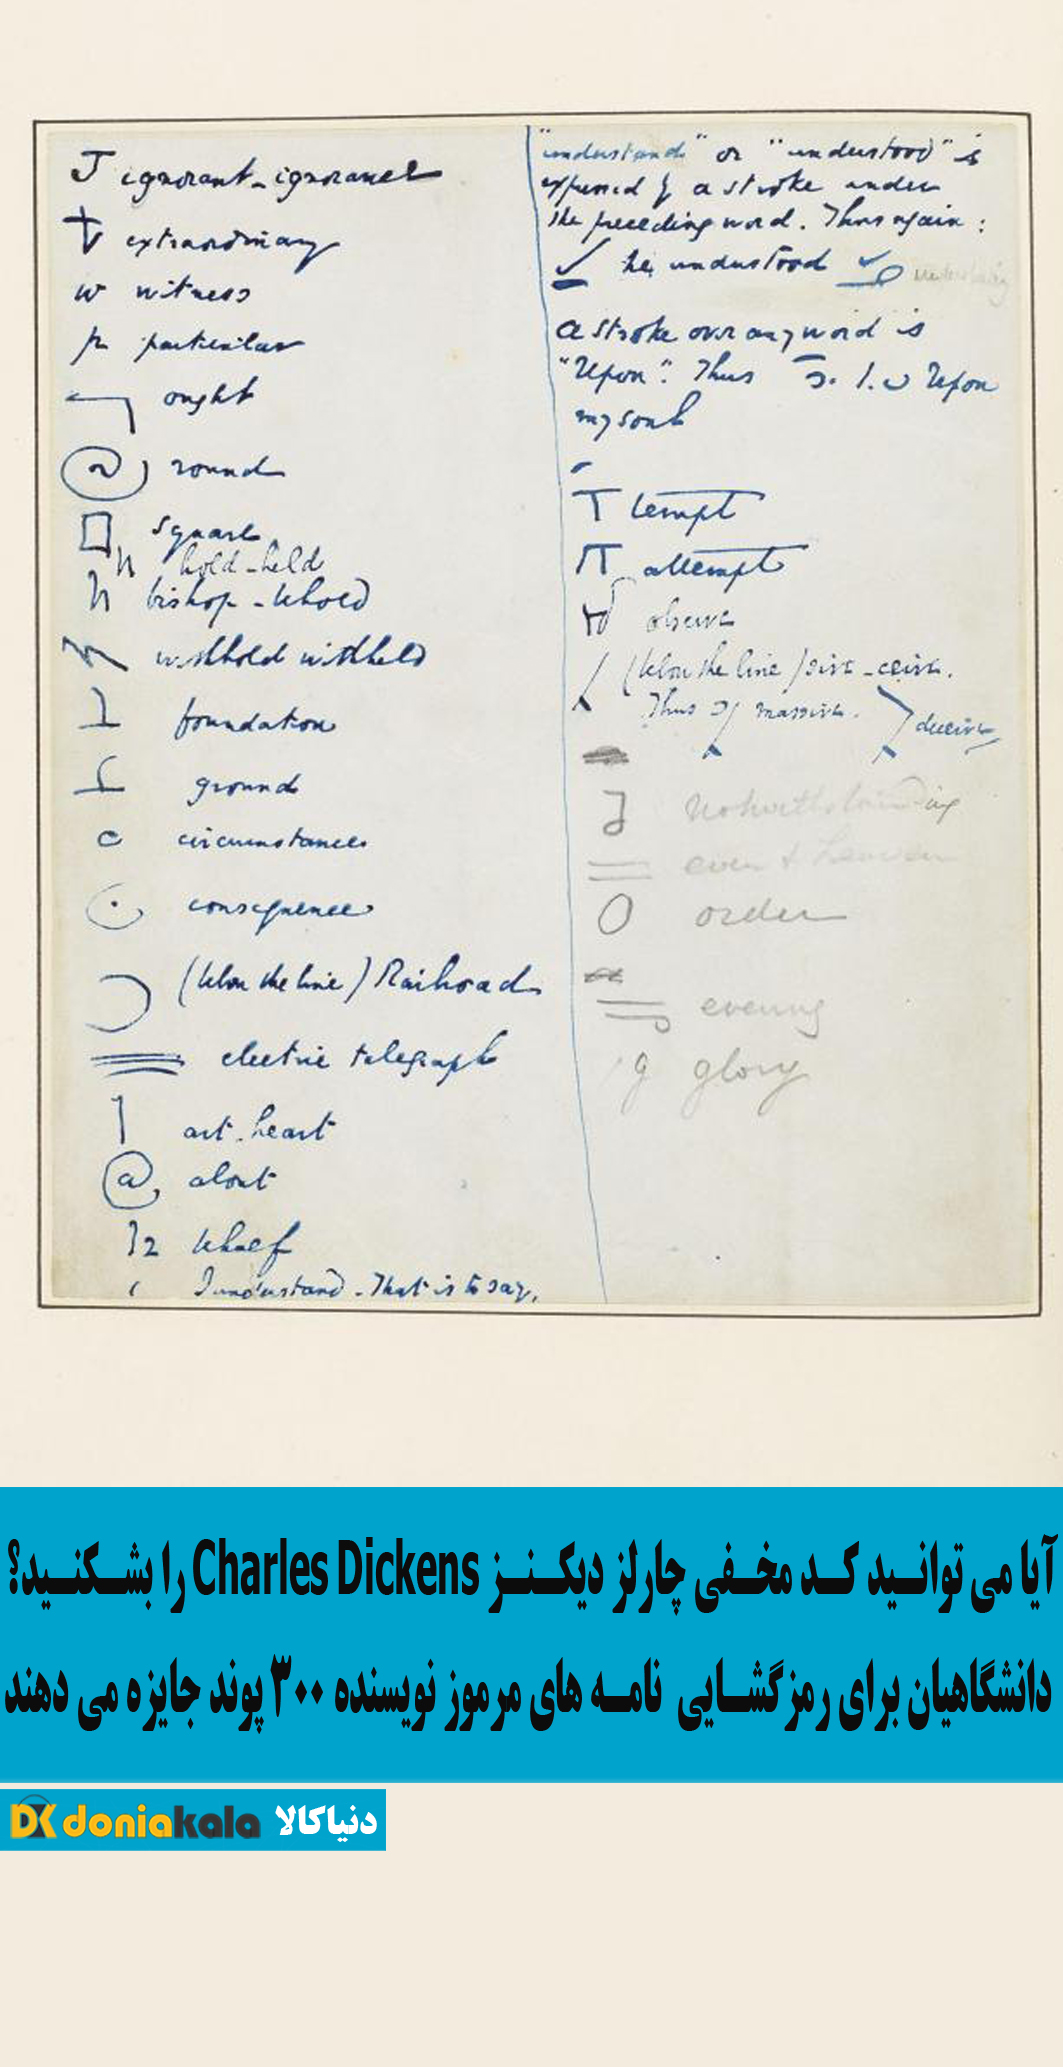 ignorant - ignorance
extraordinary
w witness
particular
ought
round
square
hold - held
bishop - behold
withhold withheld
foundation
ground
circumstances
consequence
(below the line) Railroad
electric telegraph
art. heart
@ about
wherf
I understand - That is to say,
"understand" or "understood" is
expressed by a stroke under
the preceding word. Thus again:
he understood
A stroke over any word is
"Upon". Thus i.e. Upon
my soul
T tempt
attempt
observe
(below the line) sive - ceive.
Thus massive. deceive
Notwithstanding
even & heaven
O order
evening
g glory
آیا می توانید کد مخفی چارلز دیکنز Charles Dickens را بشکنید؟
دانشگاهیان برای رمزگشایی نامه های مرموز نویسنده ۳۰۰ پوند جایزه می دهند
DK doniakala دنیاکالا